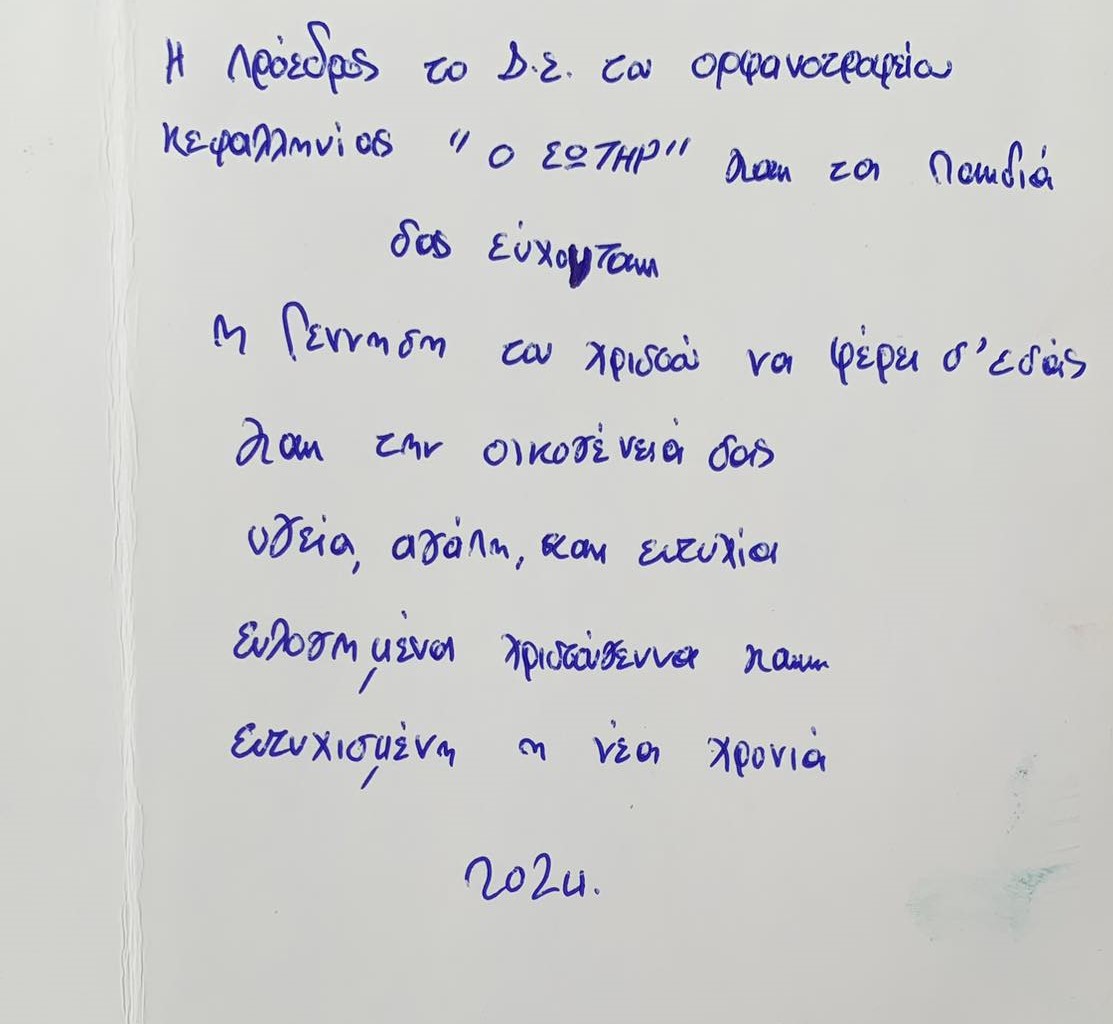 Η Πρόεδρος το Δ.Σ. του ορφανοτροφείου
Κεφαλληνίας "Ο ΣΩΤΗΡ" και τα παιδιά
σας εύχονται
η Γέννηση του Χριστού να φέρει σ'εσάς
και την οικογένειά σας
υγεία, αγάπη, και ευτυχία
Ευλογημένα Χριστούγεννα και
Ευτυχισμένη η νέα χρονιά
2024.